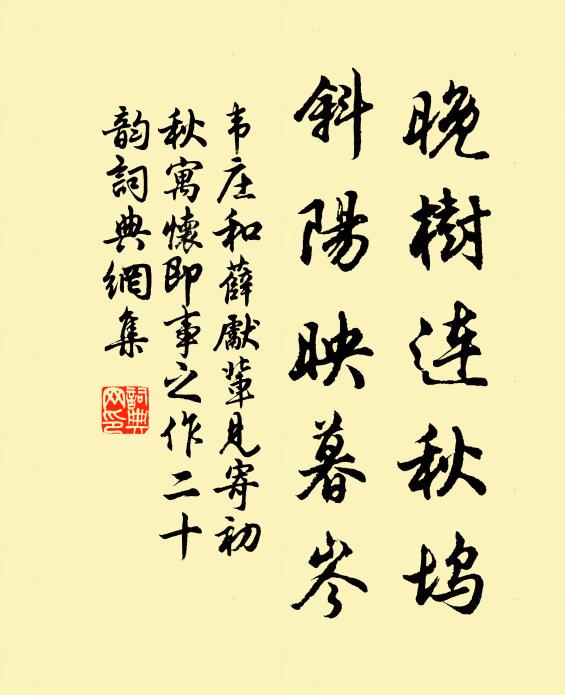 晚樹連秋坞
斜陽映暮岑
韦庄和薛獻輩見寄初
秋寓懷即事之作二十
韵詞典網集
詞典
网印